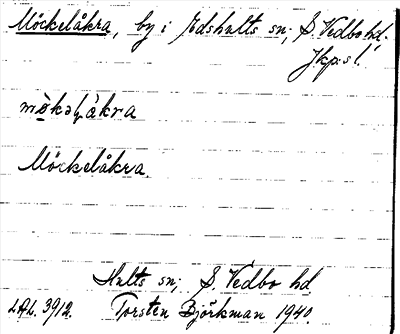 Möckelåkra, by i Edshults sn; S. Vedbo hd.
Jkp:s l.
Möckelåkra.
Hults sn; S. Vedbo hd
LAL. 3912. Torsten Björkman 1940.